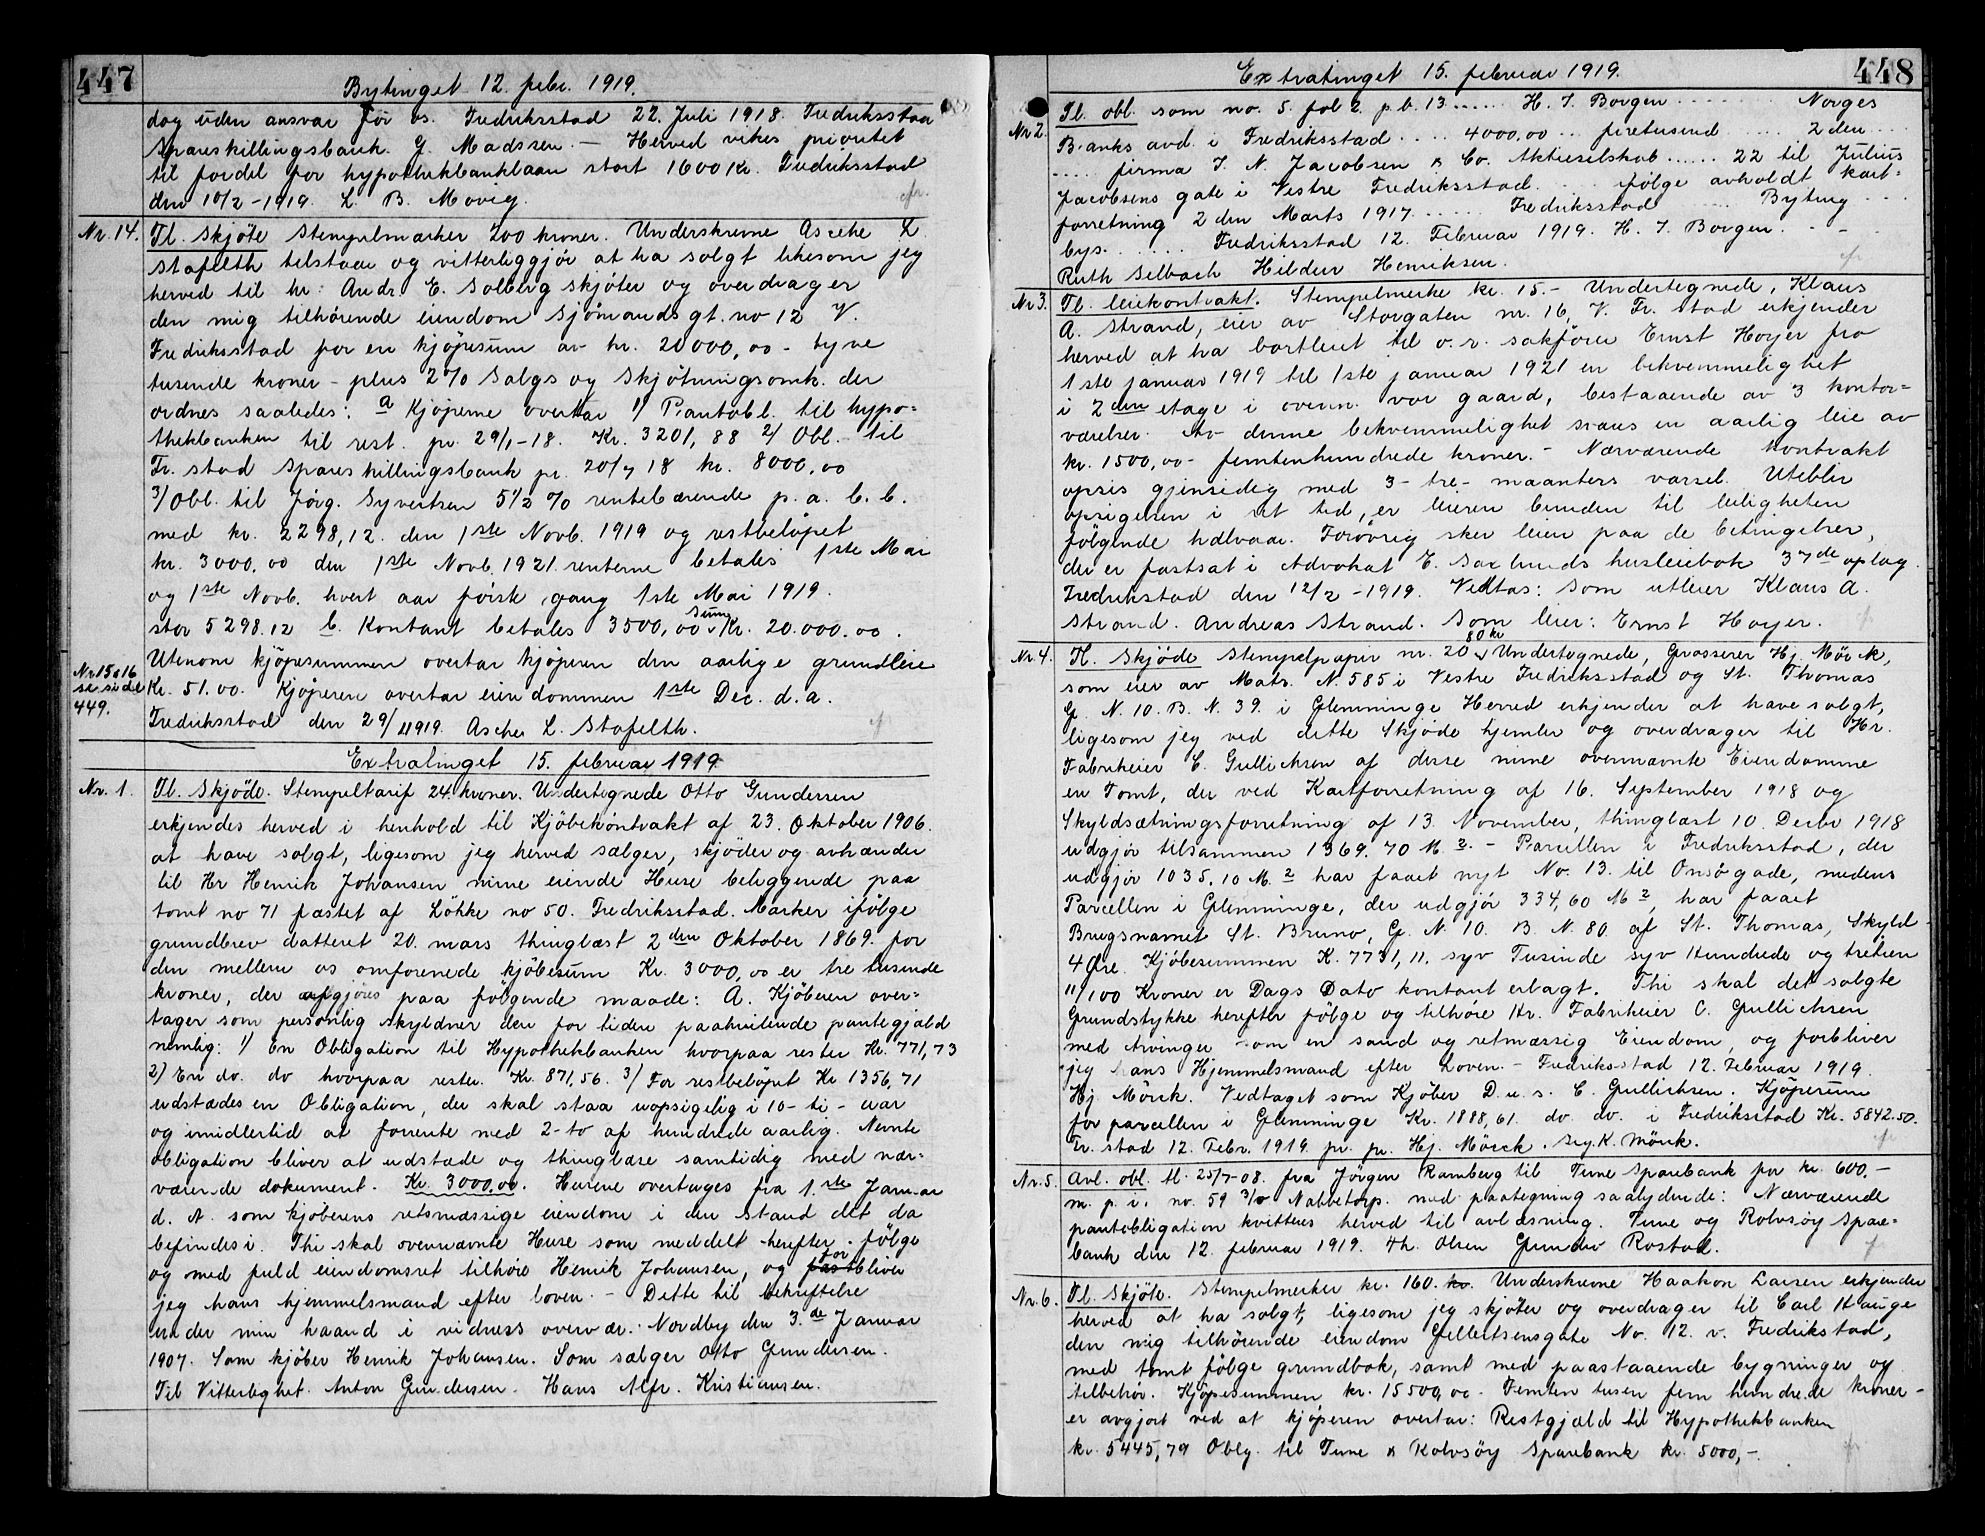 447
Bytinget 12. febr. 1919.
dog uden ansvar för os. Fredriksstad 22. Juli 1918. Fredriksstad
Spareskillingsbank. G. Madssen. — Herved vikes prioritet
til fordel for hypothekbanklaan stort 1600 Kr. Fredriksstad
den 10/2-1919. L. B. Movig.
Nr. 14. Tl. Skjöte Stempelmærker 200 kroner. Underskrevne Asche L
Stafelth tilstaar og vitterliggjör at ha solgt likesom jeg
herved til hr. Andr. E. Solberg skjöter og overdrager
den mig tilhörende eiendom Sjömandsgt. no 12 V.
Fredriksstad for en kjöpesum av kr. 20000,00 - tyve
tusende kroner - plus 2% Salgs og Skjötningsomk. der
ordnes saaledes: a Kjöperne overtar 1/ Pantobl. til hypo=
thekbanken til rest. pr. 29/1-18. Kr. 3201,88 2/ Obl. til
Fr. stad Spareskillingsbank pr. 20/7 18 kr. 8000,00
3/ Obl. til Jörg. Syvertsen 5 1/2 % rentebærende p. a. b. b.
med kr. 2298,12. den 1ste Novb. 1919 og restbelöpet
kr. 3000,00 den 1ste Novb. 1921. renterne betales 1ste Mai
og 1ste Novb. hvert aar förste gang 1ste Mai 1919.
stor 5298.12 b. Kontant betales 3500,00 Sum Kr. 20.000.00.
Utenom kjöpesummen overtar kjöperen den aarlige grundleie
Nr 15 & 16 se side 449. Kr. 51.00. Kjöperen overtar eiendommen 1ste Dec. d. a.
Fredriksstad den 29/11919. Ascher L. Stafelth.
Extratinget 15. februar 1919
Nr. 1. Tl. Skjöde. Stempeltarif 24. kroner. Undertegnede Otto Gundersen
erkjendes herved i henhold til Kjöbekontrakt af 23. Oktober 1906.
at have solgt, ligesom jeg herved sælger, skjöder og avhænder
til Hr Henrik Johansen mine eiende Huse beliggende paa
tomt no 71 fæstet af Lökke no 50. Fredriksstad. Marker ifölge
grundbrev datteret 20. mars thinglæst 2den Oktober 1869. for
den mellem os omforenede kjöbesum Kr. 3000,00 er tre tusende
kroner, der afgjöres paa fölgende maade: A. Kjöberen over=
tager som personlig skyldner den for tiden paahvilende pantegjæld
nemlig: 1) En Obligation til Hypothekbanken hvorpaa rester Kr. 771,73
2) En do. do hvorpaa rester. Kr. 871,56. 3/ For restbelöpet Kr 1356,71
udstædes en Obligation, der skal staa uopsigelig i 10- ti - aar
og imidlertid at forrente med 2-to af hundrede aarlig. Nævnte
obligation bliver at udstæde og thinglæse samtidig med nær=
værende dokument. Kr. 3000.00. Husene overtages fra 1.ste Januar
d. A. som kjöberens retsmæssige eiendom i den stand det da
befindes i. Thi skal ovennævnte Huse som meddelt herefter fölge
og med fuld eiendomsret tilhöre Henrik Johansen, og forbliver
jeg hans hjemmelsmand efter loven. - Dette til bekræftelse
under min haand i vidners overvær. Nordby den 3.de Januar
1907. Som kjöber Henrik Johansen. Som sælger Otto Gundersen.
Til Vitterlighet. Anton Gundersen. Hans Alfr. Kristiansen.
448
Extratinget 15. februar 1919.
Nr 2. Tl. obl. som no. 5. fol 2. p.b. 13 ...... H. J. Borgen ........ Norges
Banks avd. i Fredriksstad .... 4000,00 ... firetusend ..... 2den ....
.... firma J. N. Jacobsen & Co. Aktieselskab ...... 22 til Julius
Jacobsens gate i Vestre Fredriksstad .... ifölge avholdt kart=
forretning 2den Marts 1917. ...... Fredriksstad ..... Byting ...
bys. ..... Fredriksstad 12. Februar 1919. H. J. Borgen. - -
Ruth Selbach Hildur Henriksen.
Nr 3. Tl. leiekontrakt. Stempelmerke kr. 15.- Undertegnede, Klaus
A. Strand, eier av Storgaten nr. 16, V. Fr. stad erkjender
herved at ha bortleiet til o.r. sakförer Ernst Hoyer fra
1ste januar 1919 til 1ste januar 1921 en bekvemmelighet
i 2den etage i ovenn. vor gaard, bestaaende av 3 kontor=
værelser. Av denne bekvemmelighet svares en aarlig leie av
kr. 1500,00 - femtenhundrede kroner. - Nærværende kontrakt
opsis gjensidig med 3- tre- maanters varsel. Utebliv
opsigelsen i ret tid, er leieren bunden til leiligheten
fölgende halvaar. Forövrig sker leien paa de betingelser,
der er fastsat i Advokat E. Saxlunds husleiebok 37de oplag.
Fredrikstad den 12/2-1919. Vedtas: Som utleier Klaus A.
Strand. Andreas Strand. Som leier: Ernst Hoyer.
Nr. 4. H. Skjöde Stempelpapir nr. 20 80 kr Undertegnede, Grosserer Hj. Mörck,
som eier av Matr. N. 585 i Vestre Fredriksstad og St. Thomas
G. N. 10. B. N. 39. i Glemminge Herred erkjender at have solgt,
ligesom jeg ved dette Skjöde hjemler og overdrager til Hr.
Fabrikeier C. Gullichsen af disse mine ovennævnte Eiendomme
en Tomt, der ved Kartforretning af 16. September 1918 og
Skyldsætningsforretning af 13. November, thinglæst 10. Decbr 1918
udgjör tilsammen 1369.70 M.2. - Parcellen i Fredriksstad, der
udgjör 1035,10 M.2 har faaet nyt No. 13. til Onsögade, medens
Parcellen i Glemminge, der udgjör 334,60 M2, har faaet
Brugsnavnet St. Bruno, G. N. 10. B. N. 80. af St. Thomas, Skyld
4 Öre. Kjöbesummen K. 7731,11. syv Tusinde syv Hundrede og tretien
11/100 Kroner er Dags Dato kontant erlagt. Thi skal det solgte
Grundstykke herefter fölge og tilhöre Hr. Fabrikeier C. Gullichsen
med Arvinger som en sand og retmæssig Eiendom, og forbliver
jeg hans Hjemmelsmand efter Loven. - Fredriksstad 12. Februar 1919.
Hj. Mörck. Vedtaget som Kjöber D. u. s. C. Gullichsen. Kjöpesum
for parcellen i Glemminge Kr. 1888,61. do do. i Fredriksstad Kr. 5842.50.
Fr. stad 12. Febr. 1919. pr. pr. Hj. Mörck. Sig. K. Mörck.
Nr. 5. Avl. obl. tl. 25/7-08. fra Jörgen Ramberg til Tune Sparebank for kr. 600,-
m. p. i. no. 59 Nabbetorp. med paategning saalydende: Nærværende
pantobligation kvitteres herved til avlæsning. Tune og Rolvsöy Spare=
bank den 12. februar 1919. Th. Olsen Gunder Rostad.
Nr. 6. Tl. Skjöte. Stempelmerker kr. 160. kr. Underskrevne Haakon Larsen erkjender
herved at ha solgt, ligesom jeg skjöter og overdrager til Carl Hauge
den mig tilhörende eiendom Gellertsensgate No. 12. v. Fredrikstad,
med tomt fölge grundbok, samt med paastaaende bygninger og
tilbehör. Kjöpesummen kr. 15500,00. Femten tusen fem hundrede kroner -
er avgjort ved at kjöperen overtar: Restgjæld til Hypothekbanken
kr. 5445,79 Oblg. til Tune & Rolvsöy Sparebank kr. 5000,-.